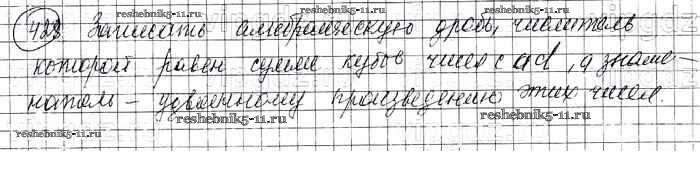 reshebnik5-11.ru
428 Записать алгебраическую дробь, числитель
которой равен сумме кубов чисел c и d, а знаме-
reshebnik5-11.ru reshebnik5-11.ru
натель – удвоенному произведению этих чисел.
reshebnik5-11.ru reshebnik5-11.ru
reshebnik5-11.ru